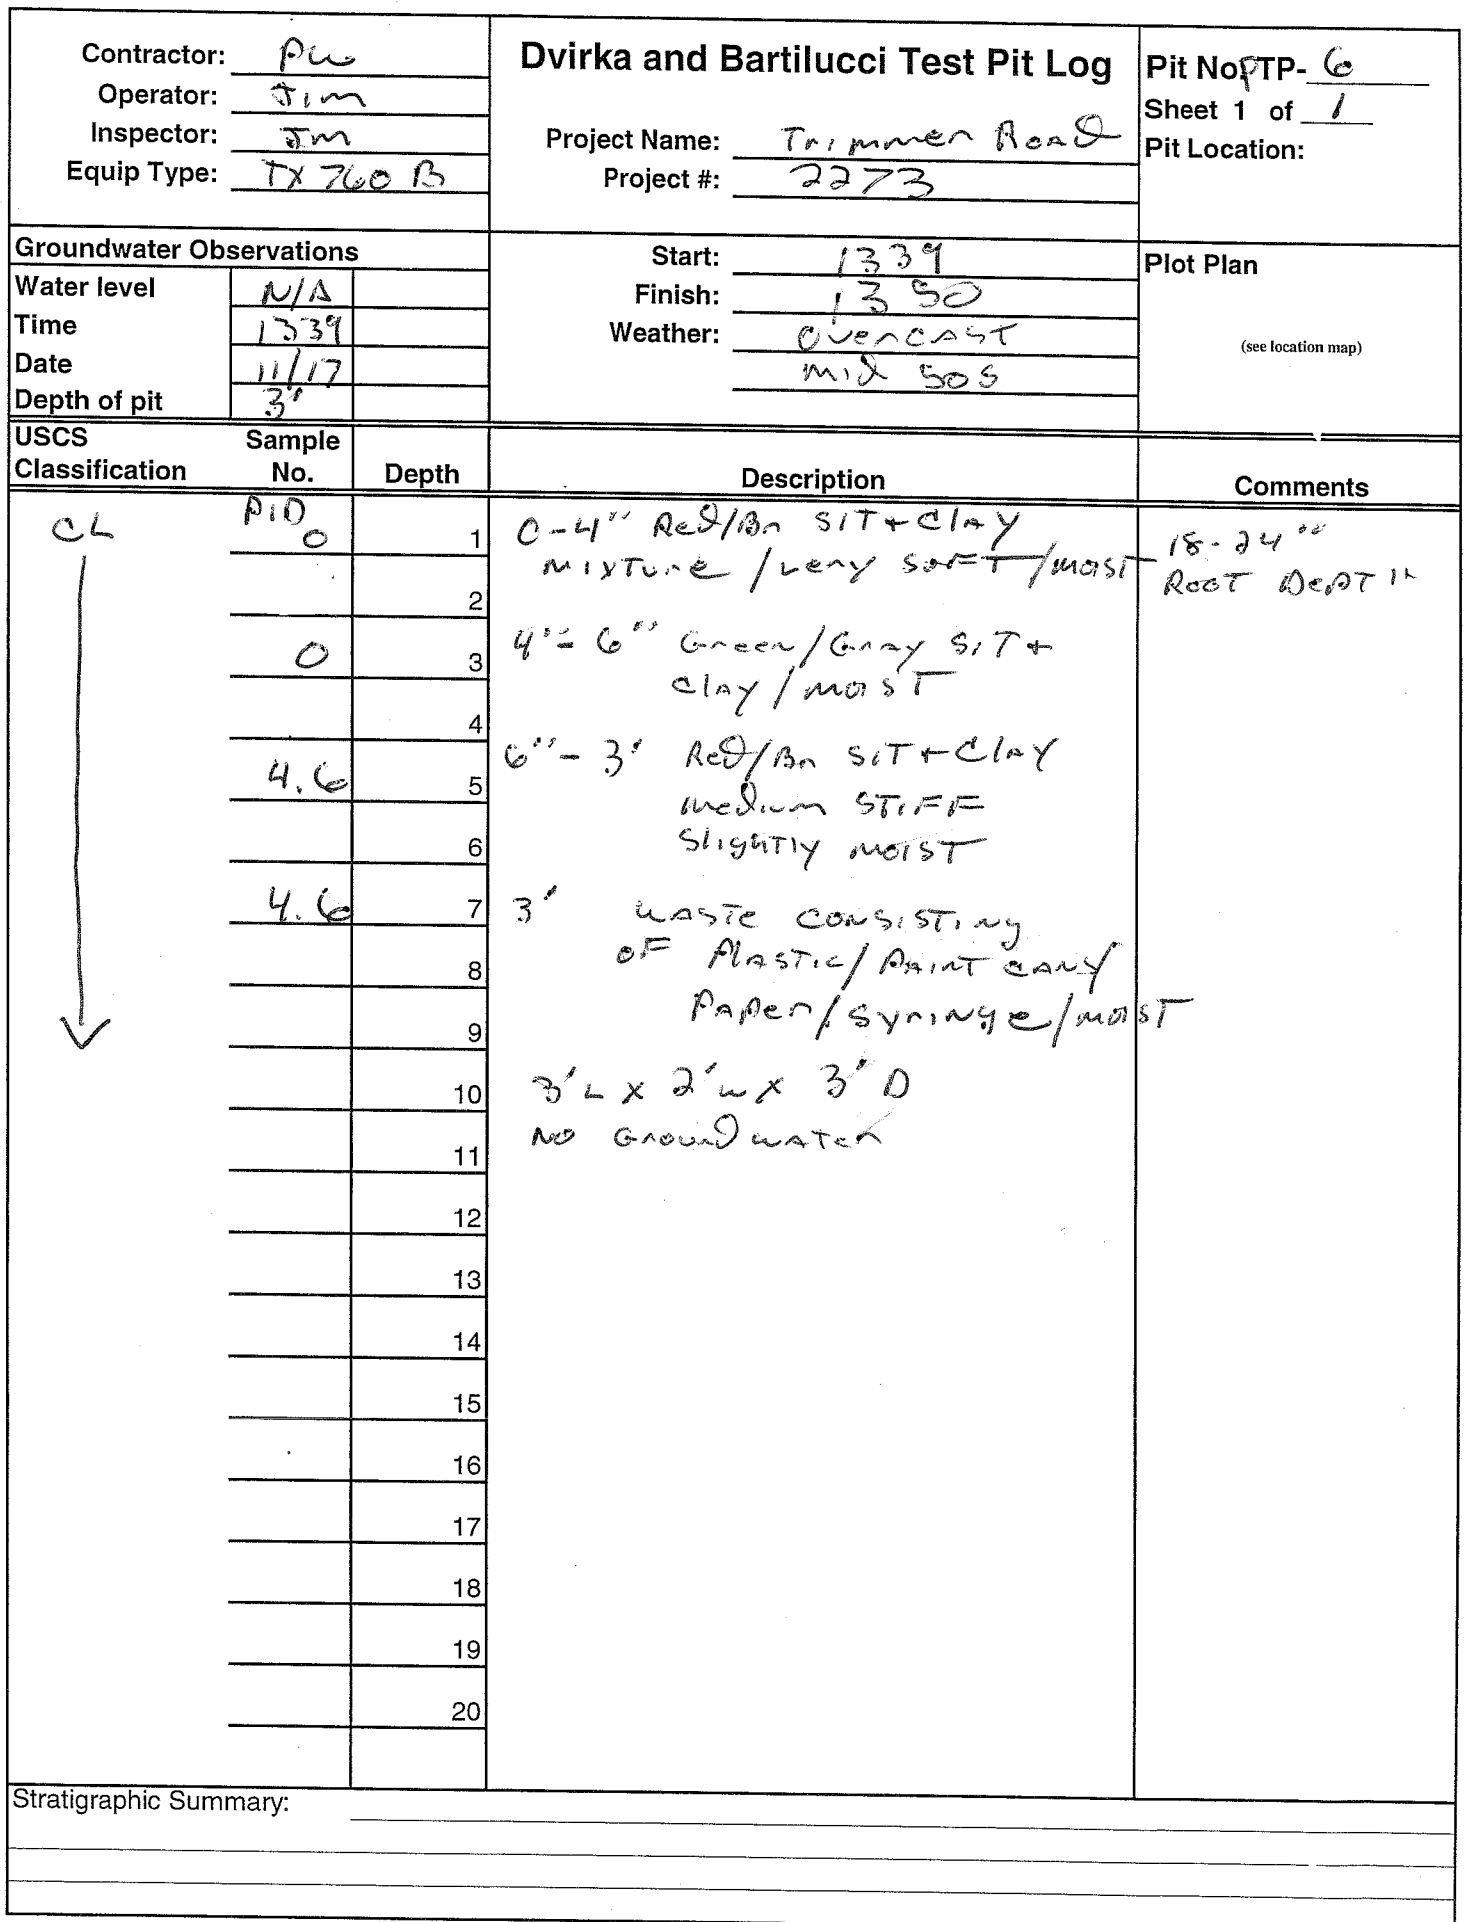 Contractor: PW
Operator: Jim
Inspector: Jm
Equip Type: TX 760 B
Dvirka and Bartilucci Test Pit Log
Project Name: Trimmer Road
Project #: 2273
Pit No PTP- 6
Sheet 1 of 1
Pit Location:
Groundwater Observations
Water level N/A
Time 1339
Date 11/17
Depth of pit 3'
Start: 1339
Finish: 1350
Weather: Overcast
mid 50s
Plot Plan
(see location map)
USCS Classification
Sample No.
Depth
Description
Comments
CL
PID
0 1 0-4" Red/Bn SiT + Clay
mixture / very soft / moist
18-24"
Root Depth
2
0 3 4"-6" Green/Gray SiT +
Clay / moist
4
4.6 5 6"-3' Red/Bn SiT + Clay
medium stiff
6 slightly moist
4.6 7 3' waste consisting
8 of Plastic/Paint cans/
9 Paper/syringe/moist
10 3'L x 2'w x 3'D
11 No Groundwater
12
13
14
15
16
17
18
19
20
Stratigraphic Summary: